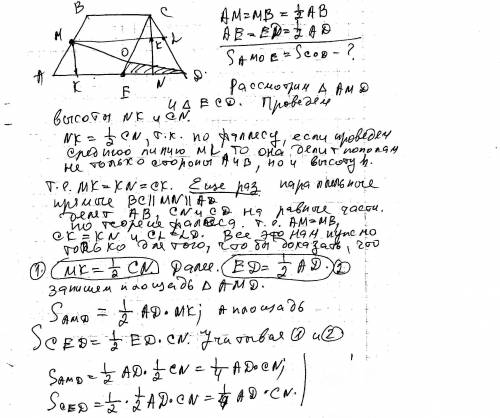 B C
M O K L
A K E N D
AM=MB=½AB
AE=ED=½AD
S AMOE = S COD - ?
Рассмотрим △ AMD
и △ ECD. Проведем
высоты МК и CN.
МК = ½ CN, т.к. по фалесу, если проведен
среднюю линию ML, то она делит пополам
не только стороны АиВ, но и высоту h.
Т.е. МК=KN=СК. Еще раз параллельные
прямые BC∥MN∥AD
делят АВ, CN и CD на равные части.
по теореме фалеса, т.е. АМ=МВ,
СК=KN и CL=LD. Все это нам нужно
только для того, что бы доказать, что
① МК=½ CN Далее. ED=½ AD. ②
запишем площадь △ AMD.
S AMD = ½ AD·МК; а площадь
S CED = ½ ED·CN. Учитывая ① и ②
S AMD = ½ AD·½ CN = ¼ AD·CN;
S CED = ½·½ AD·CN = ¼ AD·CN.